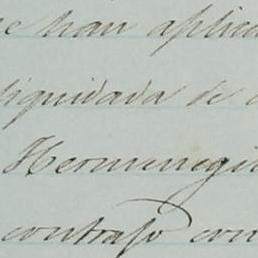 e han aplica
liquidada de
Hermenegi
contrajo con